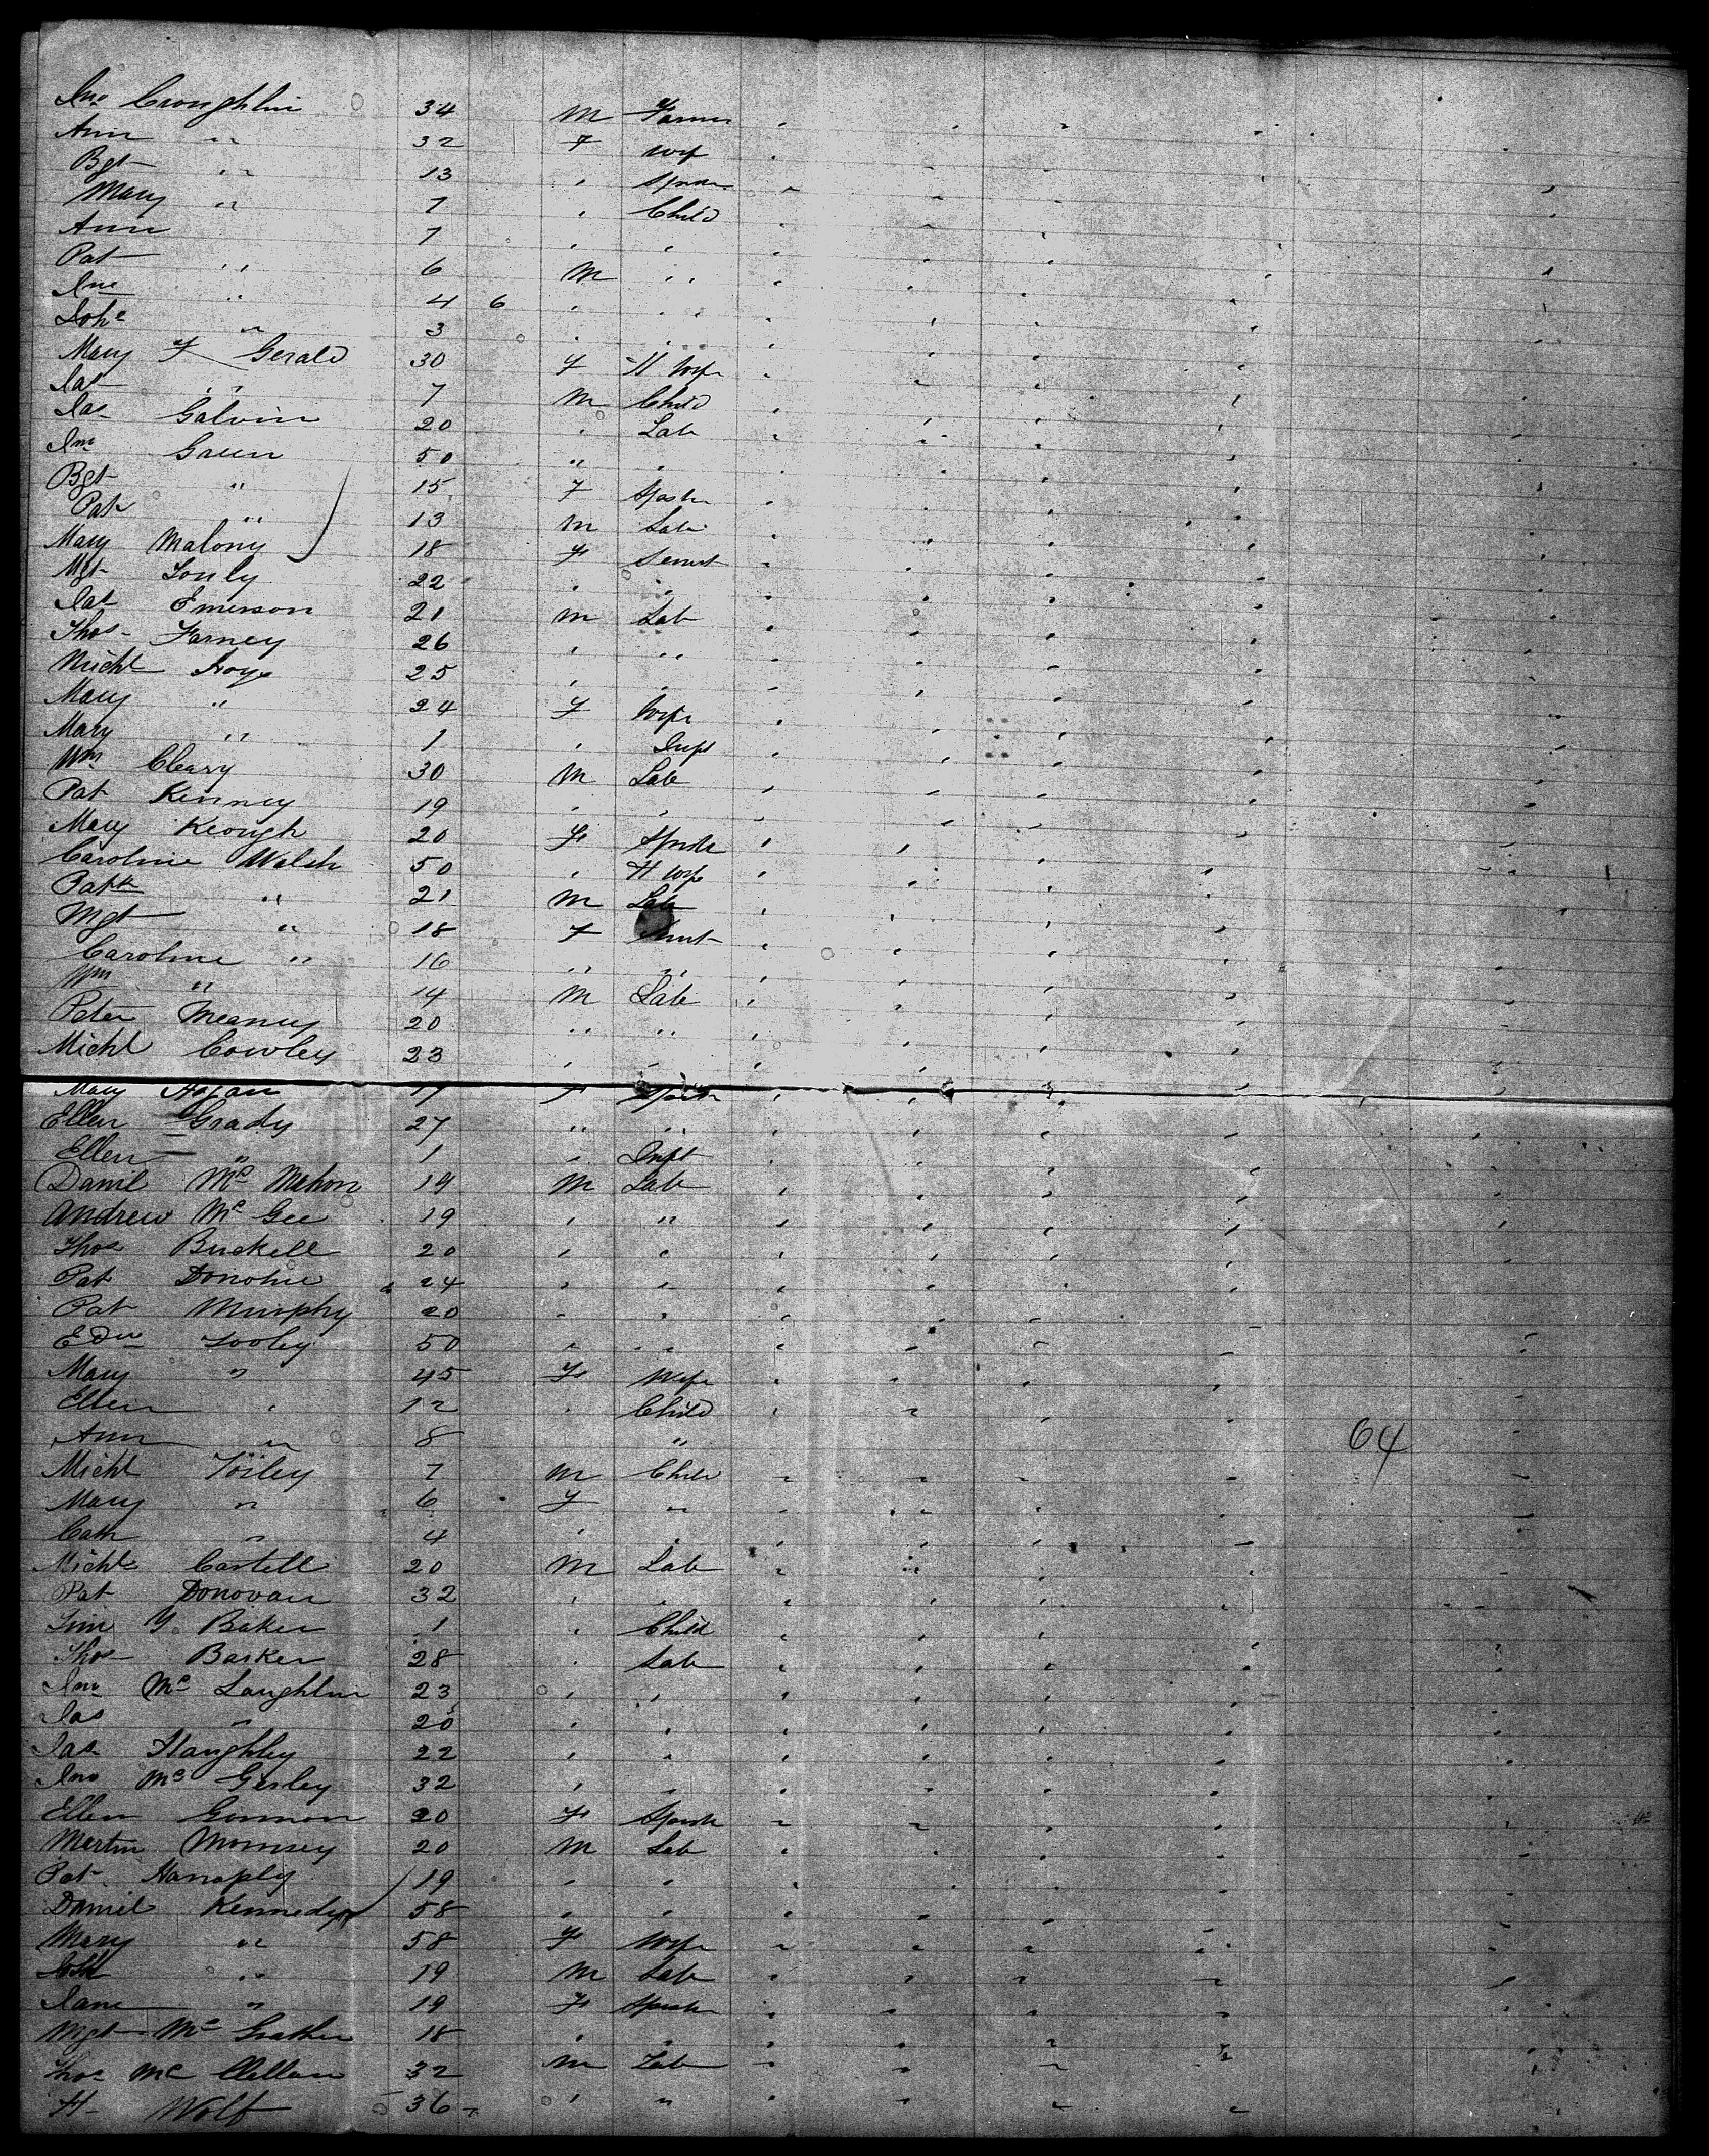 Jno Croughlin 34 M Farmer
Ann " 32 F Wife
Bgt " 13 " Spinster
Mary " 7 " Child
Ann 7 " "
Pat " 6 M "
Jno " 4 6 " "
" 3 " "
Mary F Gerald 30 F H Wife
Jas " 7 M Child
Jas Galvin 20 " Lab
Jno Green 50 " "
Bgt " 15 F Spinstr
Pat " 13 M Lab
Mary Malony 18 F Servt
Mgt 22 " "
Pat Emerson 21 M Lab
Thos Farney 26 " "
Michl 25 " "
Mary " 24 F Wife
Mary " 1 " Inft
Wm Cleary 30 M Lab
Pat Kenney 19 " "
Mary Keough 20 F Spinstr
Caroline Walsh 50 " H Wife
Patk " 21 M Lab
Mgt " 18 F
Caroline " 16 " "
Wm " 14 M Lab
Peter Meaney 20 " "
Michl Cowley 23 " "
Mary Hogan 17 F Spinstr
Ellen Grady 27 " "
Ellen " 1 " Inft
Daniel Mc Mahon 19 M Lab
Andrew Mc Gee 19 " "
Thos Buckell 20 " "
Pat Donohue 24 " "
Pat Murphy 20 " "
Edw Tooley 50 " "
Mary " 45 F Wife
Ellen " 12 " Child
Ann " 8 " 64
Michl 7 M Child
Mary " 6 F "
Cath " 4 " "
Michl Castell 20 M Lab
Pat Donovan 32 " "
Y. Baker 1 " Child
Thos Barker 28 " Lab
Jno Mc Laughlin 23 " "
Jas " 20 " "
Jas Haughley 22 " "
Jno Mc Gerley 32 " "
Ellen Gunnon 20 F Spinstr
Martin 20 M Lab
Pat Hanaply 19 " "
Daniel Kennedy 58 " "
Mary " 58 F Wife
" 19 M Lab
Jane " 19 F Spinstr
Mgt Mc Grather 18 " "
Thos Mc Clellan 32 M Lab
H Wolf 36 " "